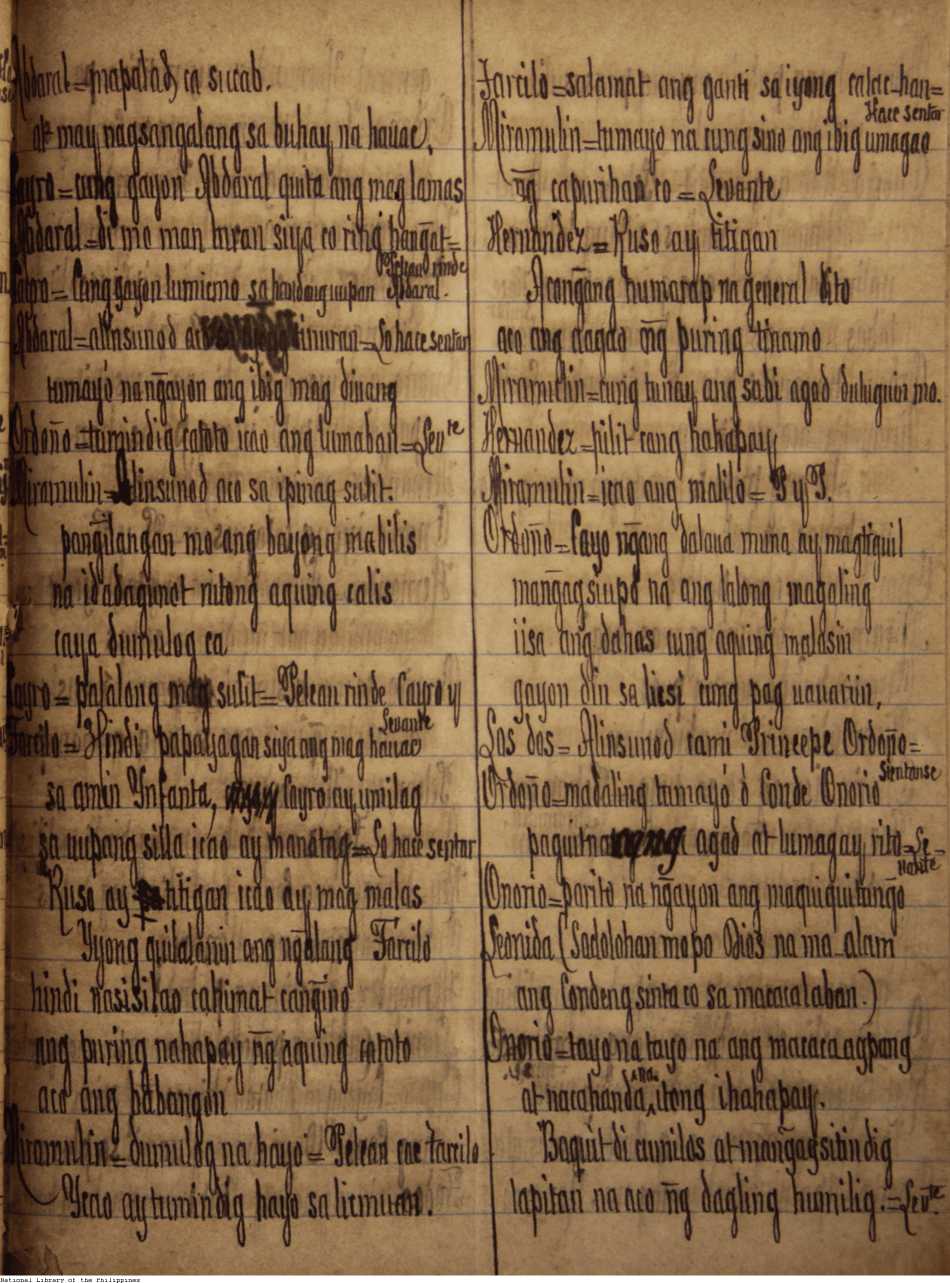 Abdaral=mapalad ca sucab.
at may nagsangalang sa buhay na hauac,
Cayro=cung gayon Abdaral quita ang mag lamas
Abdaral=di mo man turan siya co ring hang̃at=
Pelean rinde
Cayro=Cung gayon lumicmo sa uupan Abdaral.
Abdaral=alinsunod aco tinuran=Lo hace sentar
tumayo nang̃ayon ang ibig mag diuang
Ordoño=tumindig catoto icao ang lumaban=Levte
Miramulin=Alinsunod aco sa ipinag sulit.
pang̃ilangan mo ang bayong mabilis
na idadagunot nitong aquing calis
caya dumulog ca
Cayro=palalong sulit=Pelean rinde Cayro y
Levante
Farcilo=Hindi papayagan siya ang mag hauac
sa amin Ynfanta, Cayro ay umilag
sa uupang silla icao ay manatag=Lo hace sentar
Ruso ay titigan icao ay mag malas
Yyong quilalanin ang ng̃alang Farcilo
hindi nasisilao cahimat cang̃ino
ang puring nahapay ng̃ aquing catoto
aco ang babang̃on
Miramulin=dumulog na hayo=Pelean cae Farcilo
Ycao ay tumindig hayo sa licmuan.
Farcilo=salamat ang ganti sa iyong calac-han=
Hace sentar
Miramulin=tumayo na cung sino ang ibig umagao
ng̃ capurihan co=Levante
Hernandez=Ruso ay titigan
Acong̃ang humarap na general dito
aco ang aagao ng̃ puring tinamo
Miramulin=cung tunay ang sabi agad duluguin mo.
Hernandez=pilit cang hahapay
Miramulin=icao ang malilo=P y P.
Ordoño=Cayo ng̃ang dalaua muna ay magtiguil
mang̃agsiupo na ang lalong magaling
iisa ang dahas cung aquing malasin
gayon din sa licsi cung pag uauariin,
Los dos=Alinsunod cami Principe Ordoño=
Sientanse
Ordoño=madaling tumayo ó Conde Onorio
paguitna agad at lumagay rito=Le-
vante
Onorio=parito na ng̃ayon ang maquiquitung̃o
Leonida (Sadolohan mo po Dios na ma-alam
ang Condeng sinta co sa macacalaban.)
Onorio=tayo na tayo na ang macacaagpang
at nacahanda na itong ihahapay.
Baquit di cumilos at mang̃agsitindig
lapitan na aco ng̃ dagling humilig.=Levte.
National Library of the Philippines